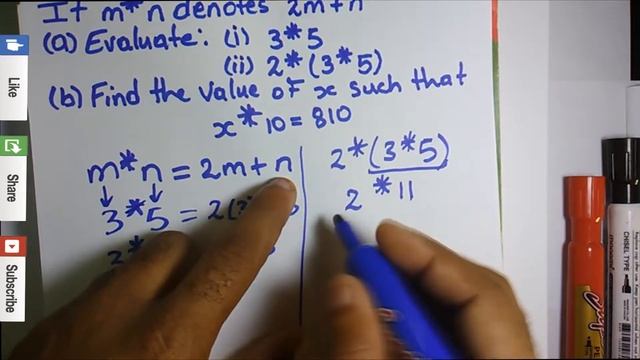 If m*n denotes 2m+n
(a) Evaluate: (i) 3*5
(ii) 2*(3*5)
(b) Find the value of x such that
x*10=810
m*n=2m+n
3*5=2(3)
2*(3*5)
2*11
Like
Share
Subscribe
CHISEL TYPE